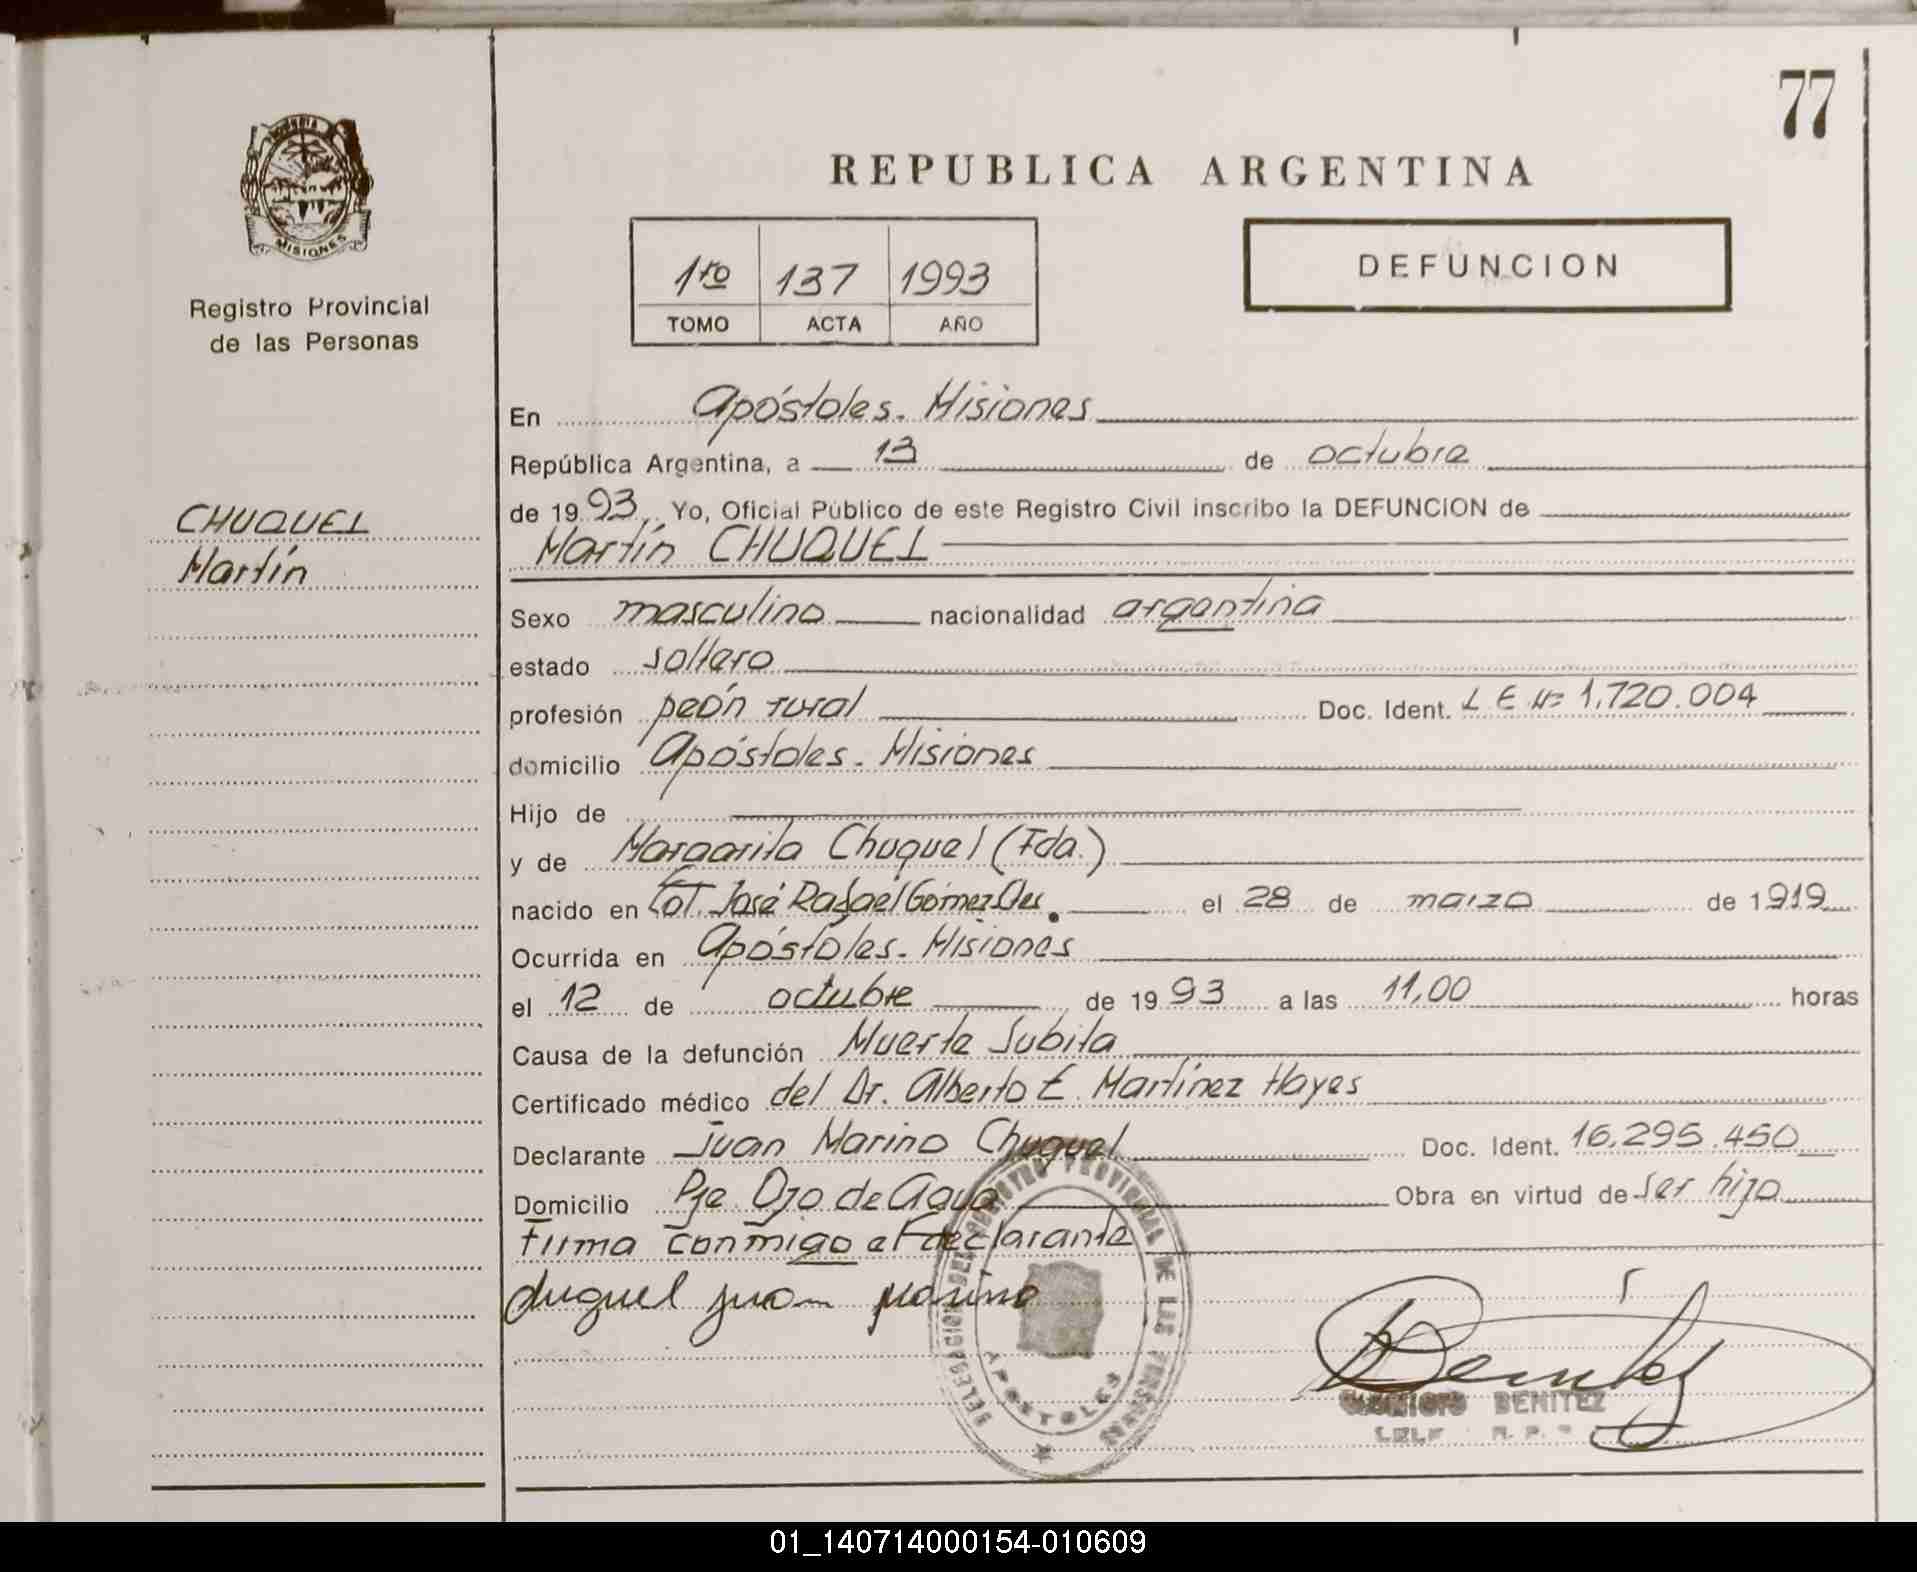 77
PROVINCIA
MISIONES
Registro Provincial
de las Personas
REPUBLICA ARGENTINA
1ro 137 1993
TOMO ACTA AÑO
DEFUNCION
CHUQUEL
Martín
En Apóstoles. Misiones
República Argentina, a 13 de octubre
de 1993 Yo, Oficial Público de este Registro Civil inscribo la DEFUNCION de
Martín CHUQUEL
Sexo masculino nacionalidad argentina
estado soltero
profesión peón rural Doc. Ident. L E Nº 1.720.004
domicilio Apóstoles. Misiones
Hijo de
y de Margarita Chuquel (Fda.)
nacido en Cot. José Rafael Gómez Ctes. el 28 de marzo de 1919
Ocurrida en Apóstoles. Misiones
el 12 de octubre de 1993 a las 11,00 horas
Causa de la defunción Muerte Subita
Certificado médico del Dr. Alberto E. Martínez Hayes
Declarante Juan Marino Chuquel Doc. Ident. 16.295.450
Domicilio Pje. Ojo de Agua Obra en virtud de ser hijo
Firma conmigo el declarante
chuquel juan marino
DELEGACION DEL REGISTRO PROVINCIAL DE LAS PERSONAS
APOSTOLES
Benítez
BENITEZ
01_140714000154-010609